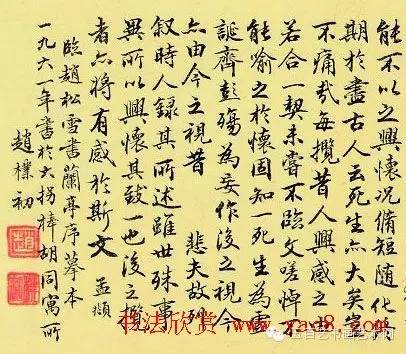 能不以之興懷況脩短随化終
期於盡古人云死生亦大矣豈
不痛哉每攬昔人興感之由
若合一契未甞不臨文嗟悼不
能喻之於懷固知一死生為虛
誕齊彭殤為妄作後之視今
亦由今之視昔 悲夫故列
叙時人録其所述雖世殊事
異所以興懷其致一也後之攬
者亦將有感於斯文 孟頫
臨趙松雪書蘭亭序摹本
一九六一年書於大拐棒胡同寓所
趙樸初
书法欣赏 www.yac8.com